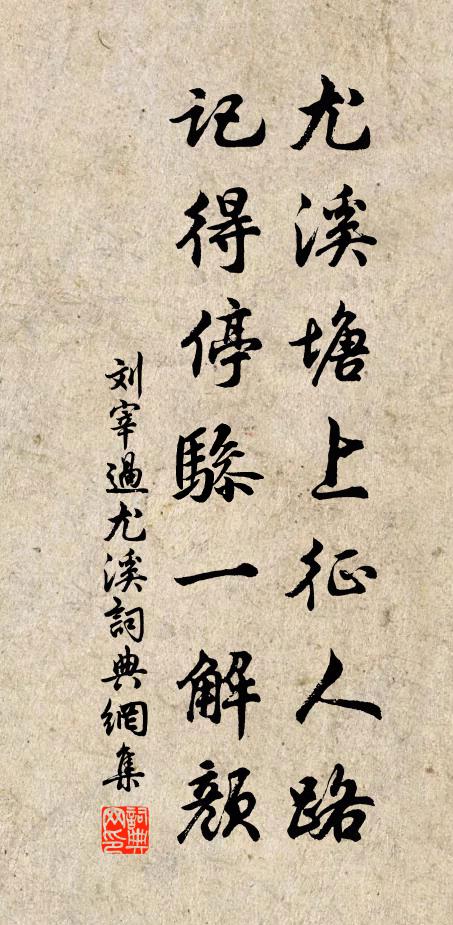 尤溪塘上征人路
記得停驂一解顏
刘宰過尤溪詞典網集
詞典网印